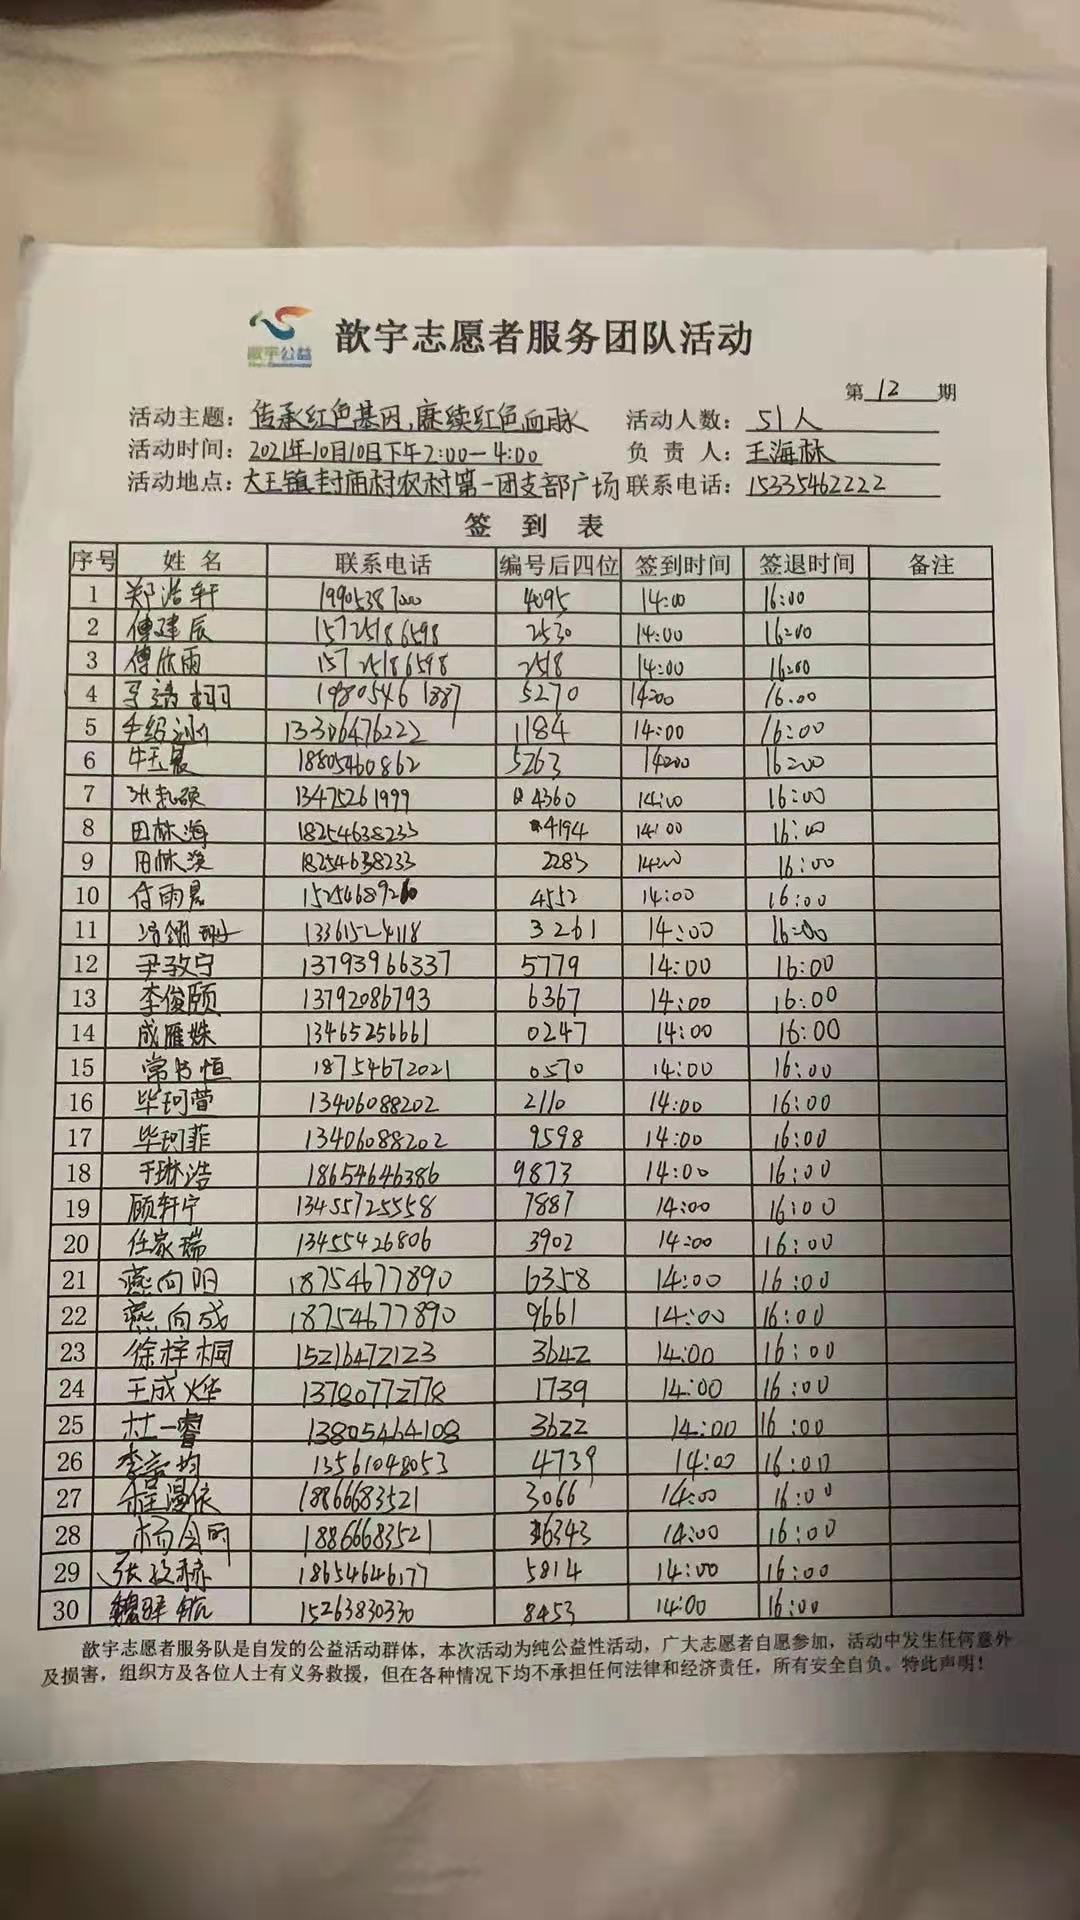 歆宇公益
歆宇志愿者服务团队活动
第 12 期
活动主题：传承红色基因,赓续红色血脉 活动人数：51人
活动时间：2021年10月10日下午2:00—4:00 负责人：王海林
活动地点：大王镇封庙村农村第一团支部广场 联系电话：15335462222
签 到 表
序号 姓名 联系电话 编号后四位 签到时间 签退时间 备注
1 郑浩轩 19905387000 4095 14:00 16:00
2 傅建辰 15725186598 2530 14:00 16:00
3 傅欣雨 15725186598 2518 14:00 16:00
4 马靖栩 19805461887 5270 14:00 16:00
5 13306476222 1184 14:00 16:00
6 牛玉晨 18805460862 5263 14:00 16:00
7 13475261999 4360 14:00 16:00
8 田林海 18254638233 4194 14:00 16:00
9 田林溪 18254638233 2283 14:00 16:00
10 付雨君 15254689260 4552 14:00 16:00
11 13361524118 3261 14:00 16:00
12 尹孜宁 13793966337 5779 14:00 16:00
13 李俊颐 13792086793 6367 14:00 16:00
14 成雁姝 13465256661 0247 14:00 16:00
15 常书恒 18754672021 0570 14:00 16:00
16 毕珂萱 13406088202 2110 14:00 16:00
17 毕珂菲 13406088202 9598 14:00 16:00
18 于琳浩 18654646386 9873 14:00 16:00
19 顾轩宁 13455725558 7887 14:00 16:00
20 任家瑞 13455426806 3902 14:00 16:00
21 燕向阳 18754677890 6358 14:00 16:00
22 燕向成 18754677890 9661 14:00 16:00
23 徐梓桐 15216472123 3642 14:00 16:00
24 王成烨 13780772778 1739 14:00 16:00
25 杜一睿 13805464108 3622 14:00 16:00
26 13561048053 4739 14:00 16:00
27 程温依 18866683521 3066 14:00 16:00
28 杨会明 18866683521 6343 14:00 16:00
29 18654646177 5814 14:00 16:00
30 魏驿航 15263830330 8453 14:00 16:00
歆宇志愿者服务队是自发的公益活动群体，本次活动为纯公益性活动，广大志愿者自愿参加，活动中发生任何意外
及损害，组织方及各位人士有义务救援，但在各种情况下均不承担任何法律和经济责任，所有安全自负。特此声明！